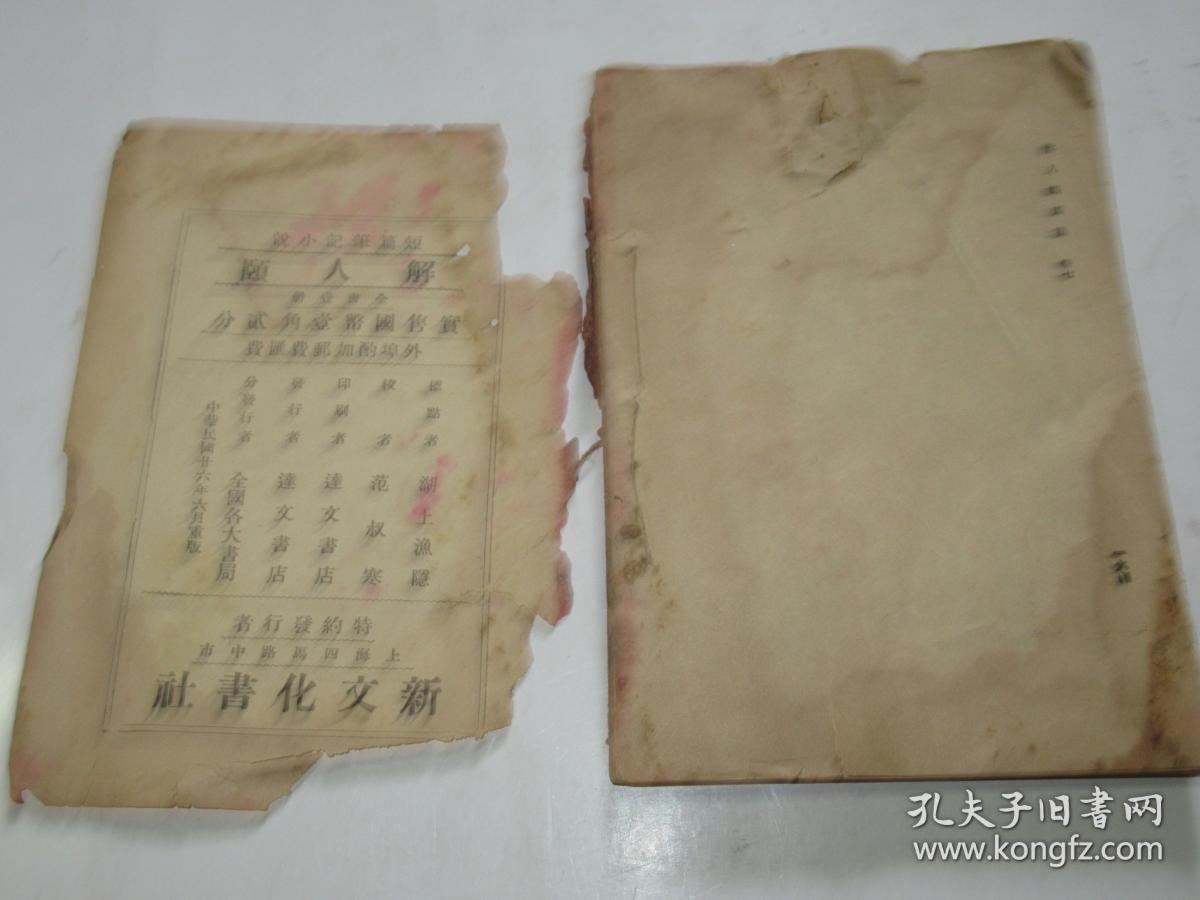 短篇筆記小說
解人頤
全書壹冊
實售國幣壹角貳分
外埠酌加郵費匯費
標點者 湖上漁隱
校者 范叔寒
印刷者 達文書店
發行者 達文書店
分發行者 全國各大書局
中華民國廿六年六月重版
特約發行者
上海四馬路中市
新文化書社
孔夫子旧书网
www.kongfz.com